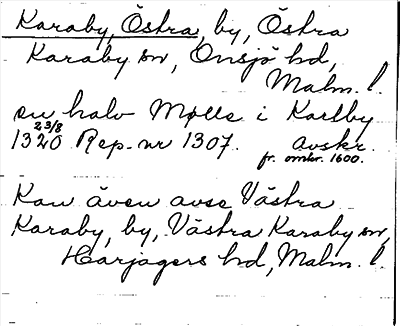 Karaby, Östra, by, Östra
Karaby sn, Onsjö hd,
Malm. l.
en halv Mølle i Karlby
1320 23/8 Rep. nr 1307. avskr.
fr. omkr. 1600.
Kan även avse Västra
Karaby, by, Västra Karaby sn,
Harjagers hd, Malm. l.